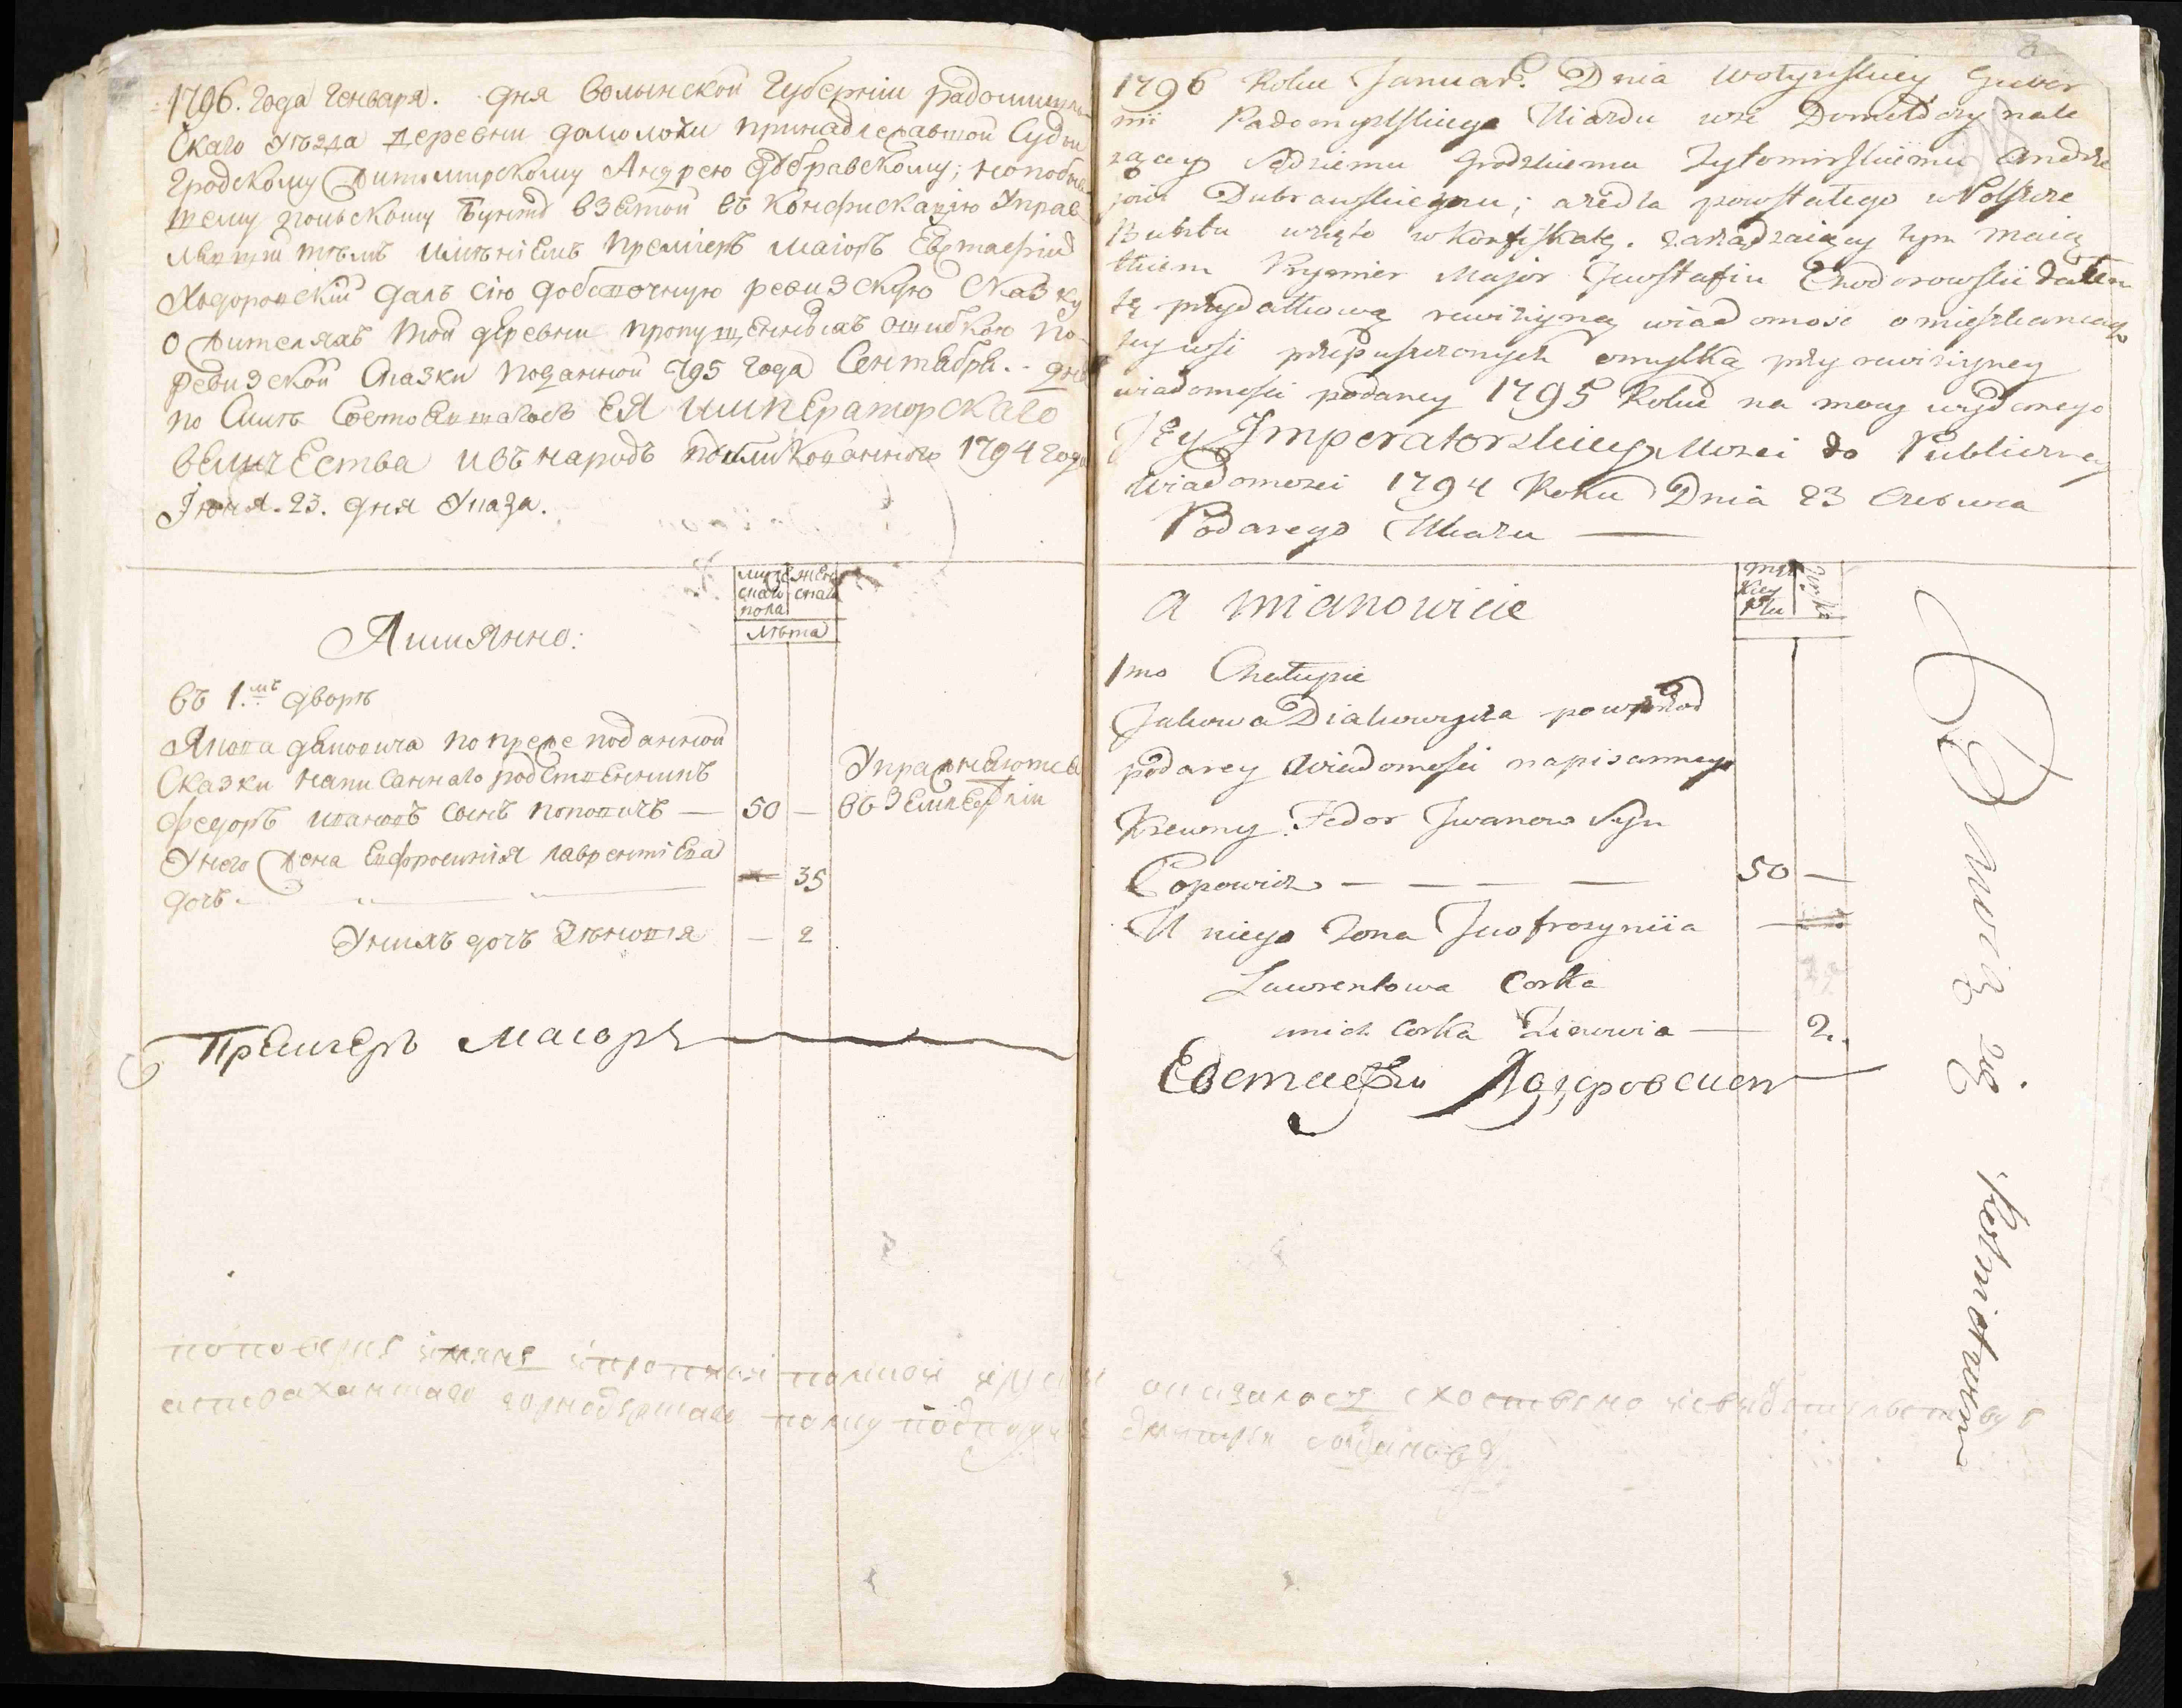 1796. года генваря. дня волынской губернии радомышль
скаго уѣзда деревни должалки принадлежавшой Судьи
гродскому житомирскому Андрею дубравскому; а по бывшему
польскому бунту взятой въ конфискацию Управ
ляющи тѣмъ имѣниемъ премиеръ маиоръ Евстафий
Ходоровский далъ сию добавочную ревизскую сказку
о жителяхъ той деревни пропущенныхъ ошибкою по
ревизской сказки поданной 795 года Сентября. - дня
по силе состоявшагось ЕЯ императорскаго
величества и въ народъ публикованного 1794 года
Июня. 23. дня Указа.
мужескаго пола
женскаго
лѣта
А имянно:
въ 1.мъ дворѣ
Якова дяковича по преже поданной
сказки написаннаго родственникъ
Федоръ ивановъ сынъ поповичъ — 50 —
Упражняются
въ Земледѣлии
У него жена Евфросиния лаврентиева
дочь. — 35
У нихъ дочь Зѣновия — 2
Премиеръ Маиоръ
1796 Roku Januar. Dnia Wołyńskiey Guber
nii Radomyslskiego Uiazdu wsi nale
żącey Sędziemu Grodzkiemu Zytomirskiemu Andrze
jowi Dubrawskiemu; a zedla powstałego w Polszcze
Buntu wzięto w konfiskatę. zarządzaiący tym maią
tkiem Prymier Major Jewstafiu Chodorowski dałem
tę przydatkową rewizyiną wiadomosc o mieszkancach
tey wsi przepuszczonych omyłką przy rewizyiney
wiadomosci podaney 1795 Roku na mocy wydanego
Jey Imperatorskiey Mosci do Publiczney
Wiadomosci 1794 Roku Dnia 23 Czerwca
Podanego Ukazu —
a mianowicie
męz
kiey
płci
1mo Chałupie
Jakowa Diakowicza powprzod
podaney wiadomosci napisannego
Krewny Fedor Jwanow Syn
Popowicz — — — — 50 —
U niego Zona Jewfrozyniia
Lawrentowa Corka
u nich Corka Zienowia — 2.
Евстафий Ходоровский
по поверке
оказалось сходствено и свидѣтельствуе